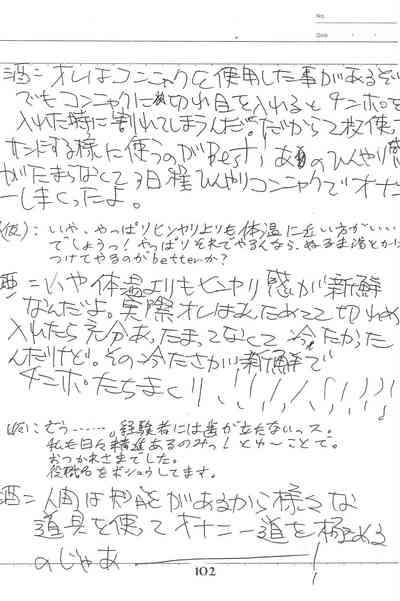 No.
Date
酒=オレはコンニャクを使用した事があるぞい
でもコンニャクに切れ目を入れるとチンポを
入れた時に割れてしまうんだ。だから2枚使っ
サンドする様に使うのがBest! あのひんやり感
がたまらなくて3日程ひんやりコンニャクでオナニ
ーしまくったよ。
(仮):いや、やっぱりヒンヤリよりも体温に近い方がいい
でしょうっ!やっぱりそれでやるんなら、ぬるま湯とかに
つけてやるのがbetterか?
酒=いや体温よりもヒンヤリ感が新鮮
なんだよ。実際オレはあたためて切れめ
入れたら充分あたたまってなくて冷たかった
んだけど。その冷たさが新鮮で
チンポたちまくり!!!!!!!!!
(仮):そう……。経験者には歯が立たないっス。
私も日々精進あるのみっ!とゆーことで。
おつかれさまでした。
役職名をボシュウしてます。
酒=人間は知能があるから様々な
道具を使ってオナニー道を極める
のじゃあ――――!
102